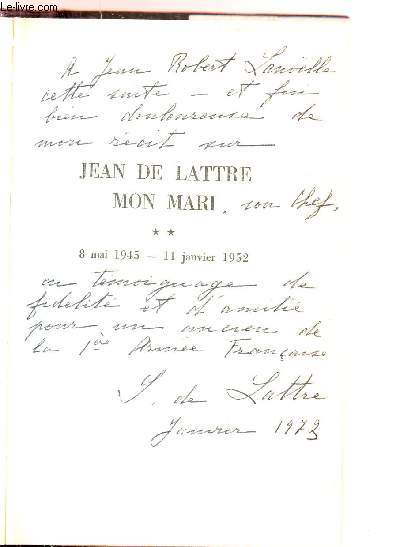 Le-livre.com
A Jean Robert Lanoille
cette suite - et fin
bien douloureuse de
mon récit sur
JEAN DE LATTRE
MON MARI, son Chef,
★ ★
8 mai 1945 - 11 janvier 1952
en témoignage de
fidélité et d'amitié
pour un ancien de
la 1ère Armée Française
S. de Lattre
Janvier 1973